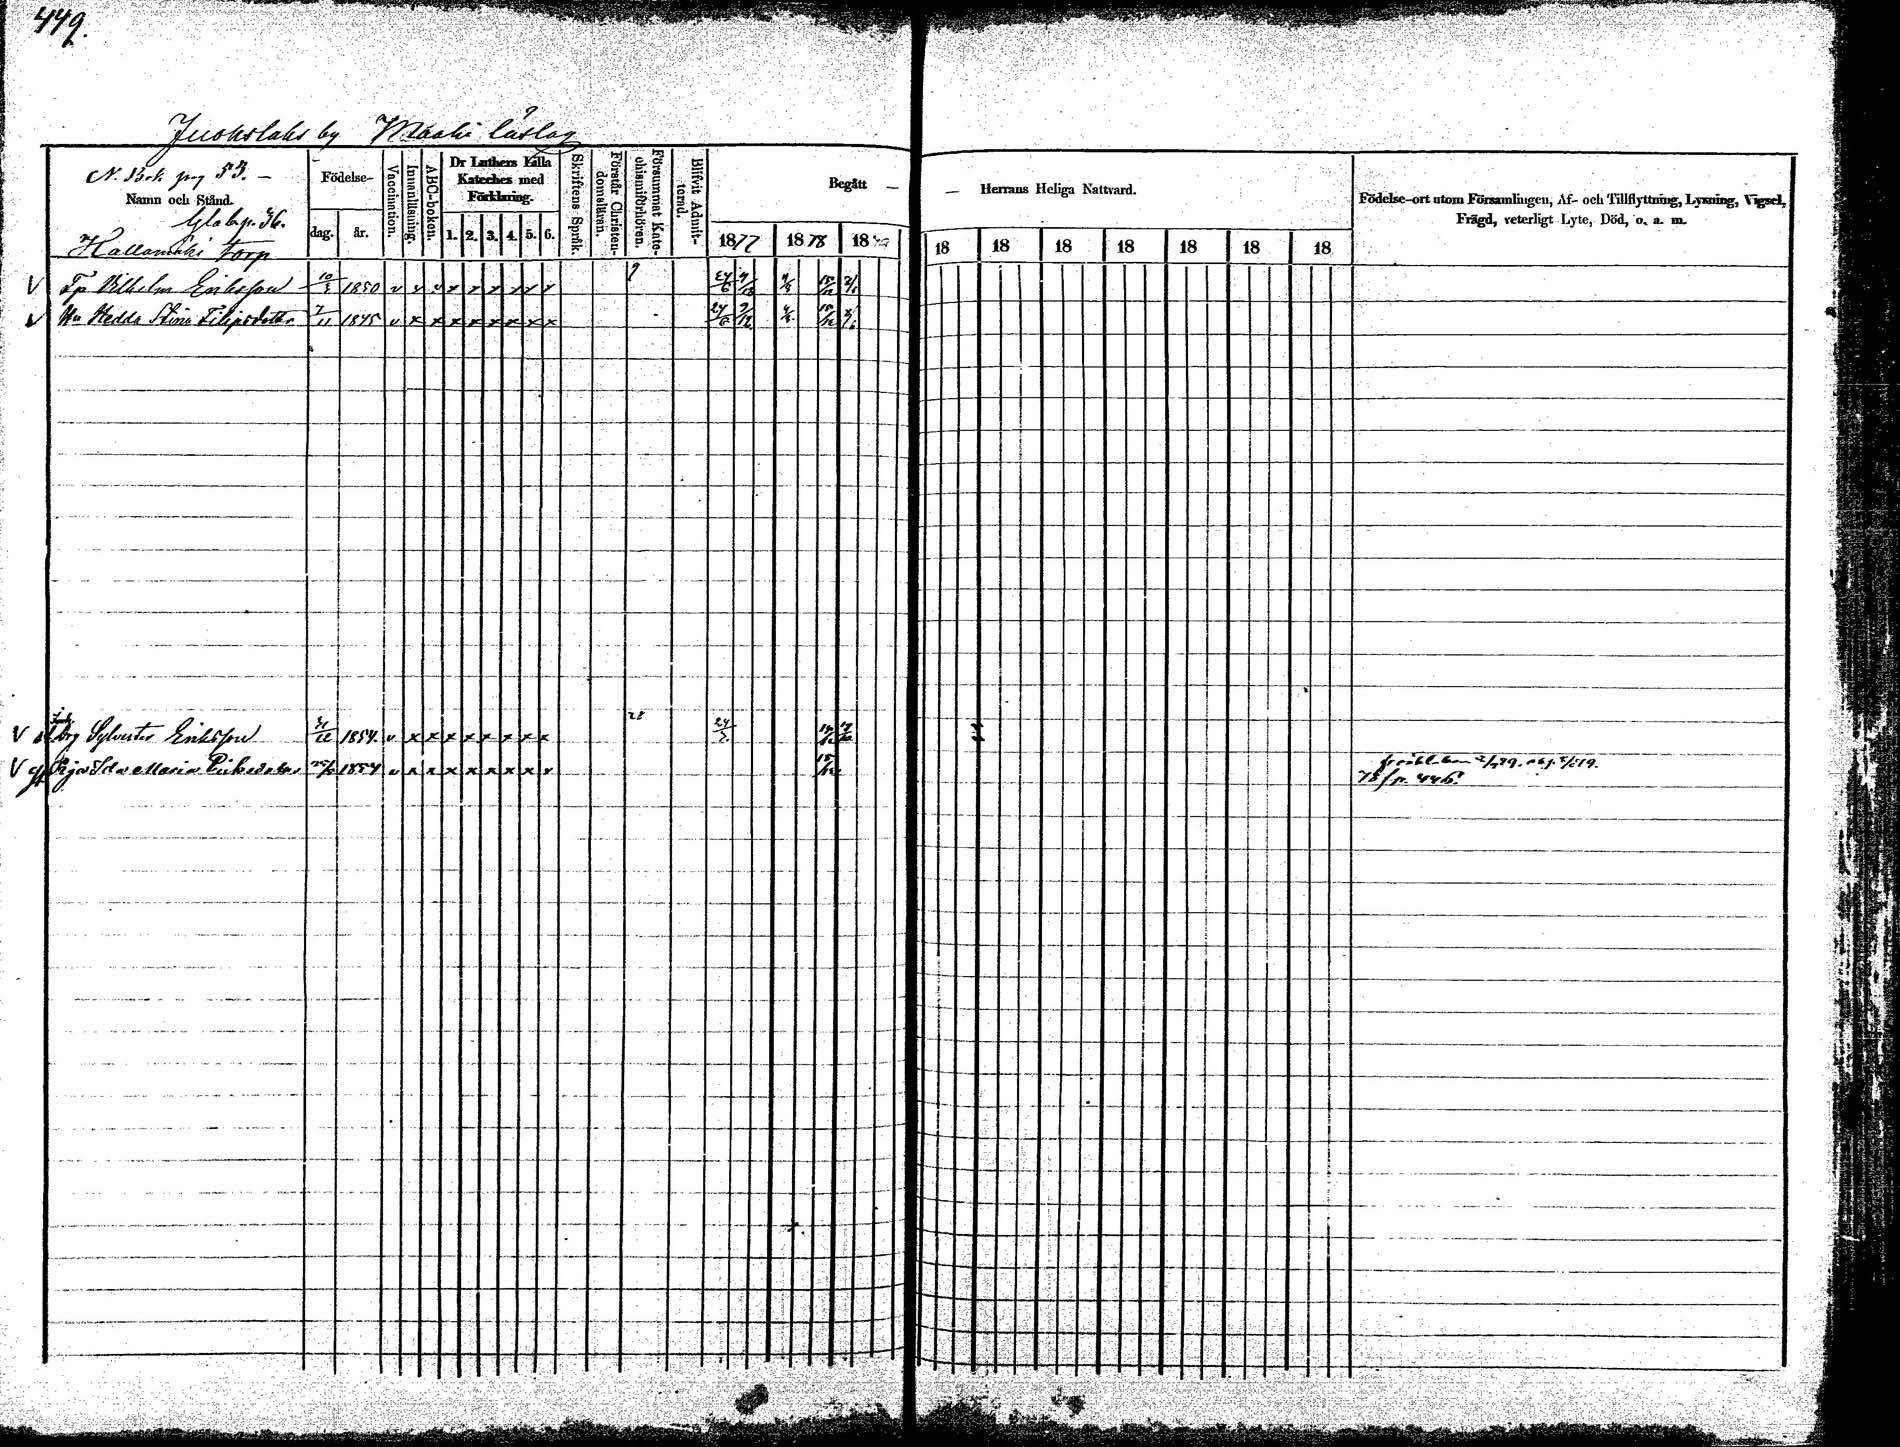 449.
Juokslaks by Maaki läslag
N. Bok pag 53. –
Namn och Stånd.
Födelse–
dag. år.
Vaccination.
Innanläsning.
ABC-boken.
Dr Luthers Lilla
Kateches med
Förklaring.
1. 2. 3. 4. 5. 6.
Skriftens Språk.
Förstår Christen-
domsläran.
Försummat Kate-
chismiförhören.
Blifvit Admit-
terad.
Begått —
— Herrans Heliga Nattvard.
1877 1878 1879
18 18 18 18 18 18 18
Födelse-ort utom Församlingen, Af- och Tillflyttning, Lysning, Vigsel,
Frägd, veterligt Lyte, Död, o. a. m.
Gla bp. 36.
Kallamäki torp
V Tp Vilhelm Eriksson 10/3 1850 v v v x x x x x x 9 24/6 9/12 4/3 15/12 2/6
v Hu Hedda Stina Filipsdotter 7/11 1845 v x x x x x x x x 24/6 9/12 4/3 15/12 2/6
V Sylvester Eriksson 31/12 1854 v x x x x x x x x 28 24/7
V Pig. Ida Maria Eriksdotter 25/ 1854 v x x x x x x x v 15/12
78 f. p. 446.